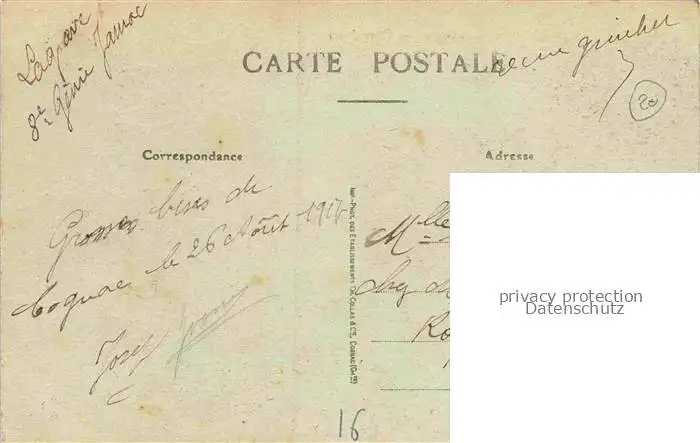 Lagrave
8e Génie Jarnac
CARTE POSTALE
20
Correspondance
Adresse
Grosses bises de
Cognac le 26 Août 1917
Josep
IMP. PHOT. DES ETABLISSEMENTS CH. COLLAS & Cie, COGNAC
Mlle
privacy protection
Datenschutz
16